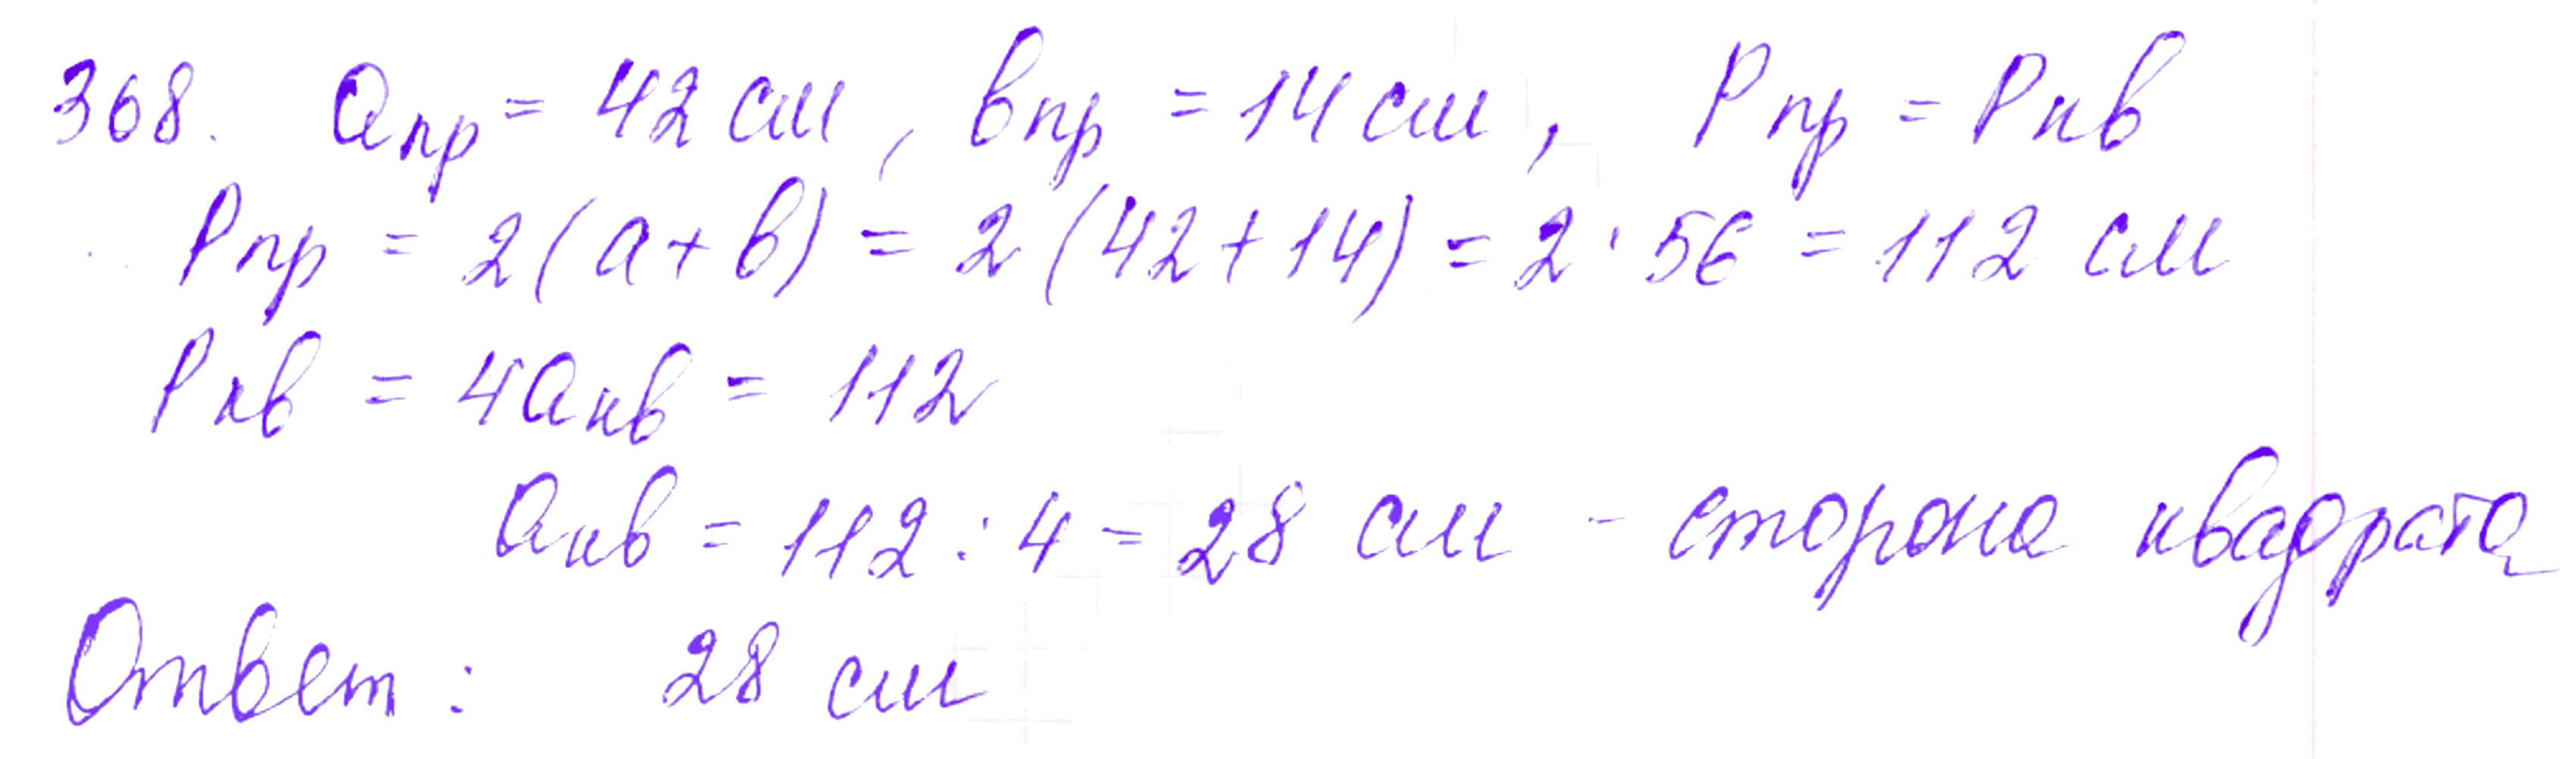 368. aпр = 42 см, bпр = 14 см, Pпр = Pкв
Pпр = 2(a+b) = 2(42+14) = 2·56 = 112 см
Pкв = 4aкв = 112
aкв = 112:4 = 28 см - сторона квадрата
Ответ: 28 см